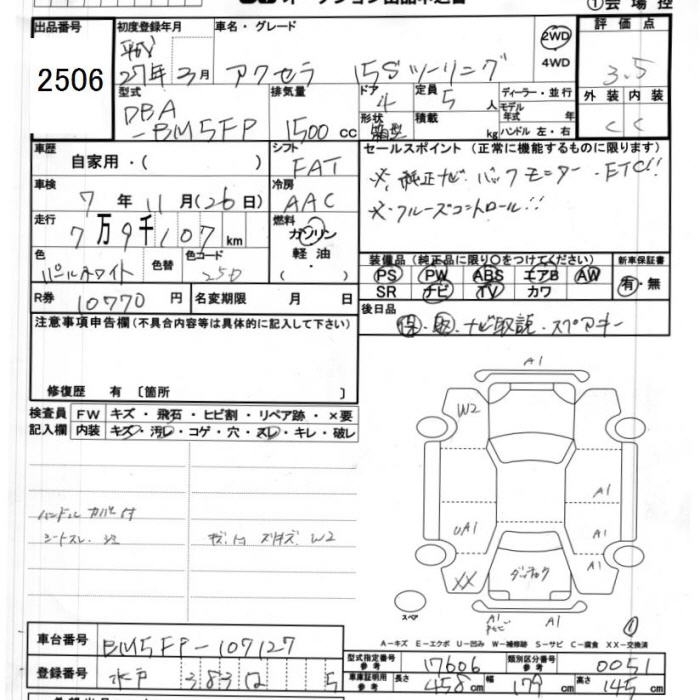 オークション出品申込書
①会場控
出品番号 2506
初度登録年月 平成 27年 3月
車名・グレード アクセラ 15Sツーリング
2WD
4WD
評価点 3.5
型式 DBA-BM5FP
排気量 1500 cc
ドア 4
形状 箱型
定員 5 人
積載 kg
ディーラー・並行
モデル年式 年
ハンドル 左・右
外装 内装
C C
車歴 自家用・( )
シフト FAT
車検 7 年 11 月 (26 日)
冷房 AAC
走行 7万9千107 km
燃料 ガソリン
軽油
( )
色 パールホワイト 色替
色コード 25D
R券 10770 円
名変期限 月 日
セールスポイント (正常に機能するものに限ります)
※純正ナビ・バックモニター・ETC!!
※クルーズコントロール!!
装備品 (純正品に限り○をつけてください)
PS PW ABS エアB AW
SR ナビ TV カワ
新車保証書
有・無
後日品
保・取・ナビ取説・スペアキー
注意事項申告欄(不具合内容等は具体的に記入して下さい)
修復歴 有 〔箇所 〕
検査員記入欄
FW キズ・飛石・ヒビ割・リペア跡・×要
内装 キズ・汚レ・コゲ・穴・スレ・キレ・破レ
ハンドルカバー付
シートスレ
W2
A1
W2
A1
A1
UA1
A1
XX
ダッチョク
A1
A1
スペア
①
A-キズ E-エクボ U-凹み W-補修跡 S-サビ C-腐食 XX-交換済
車台番号 BM5FP-107127
登録番号 水戸
型式指定番号 17606
類別区分番号 0051
車庫証明用参考 長さ 458cm 幅 179cm 高さ 145cm